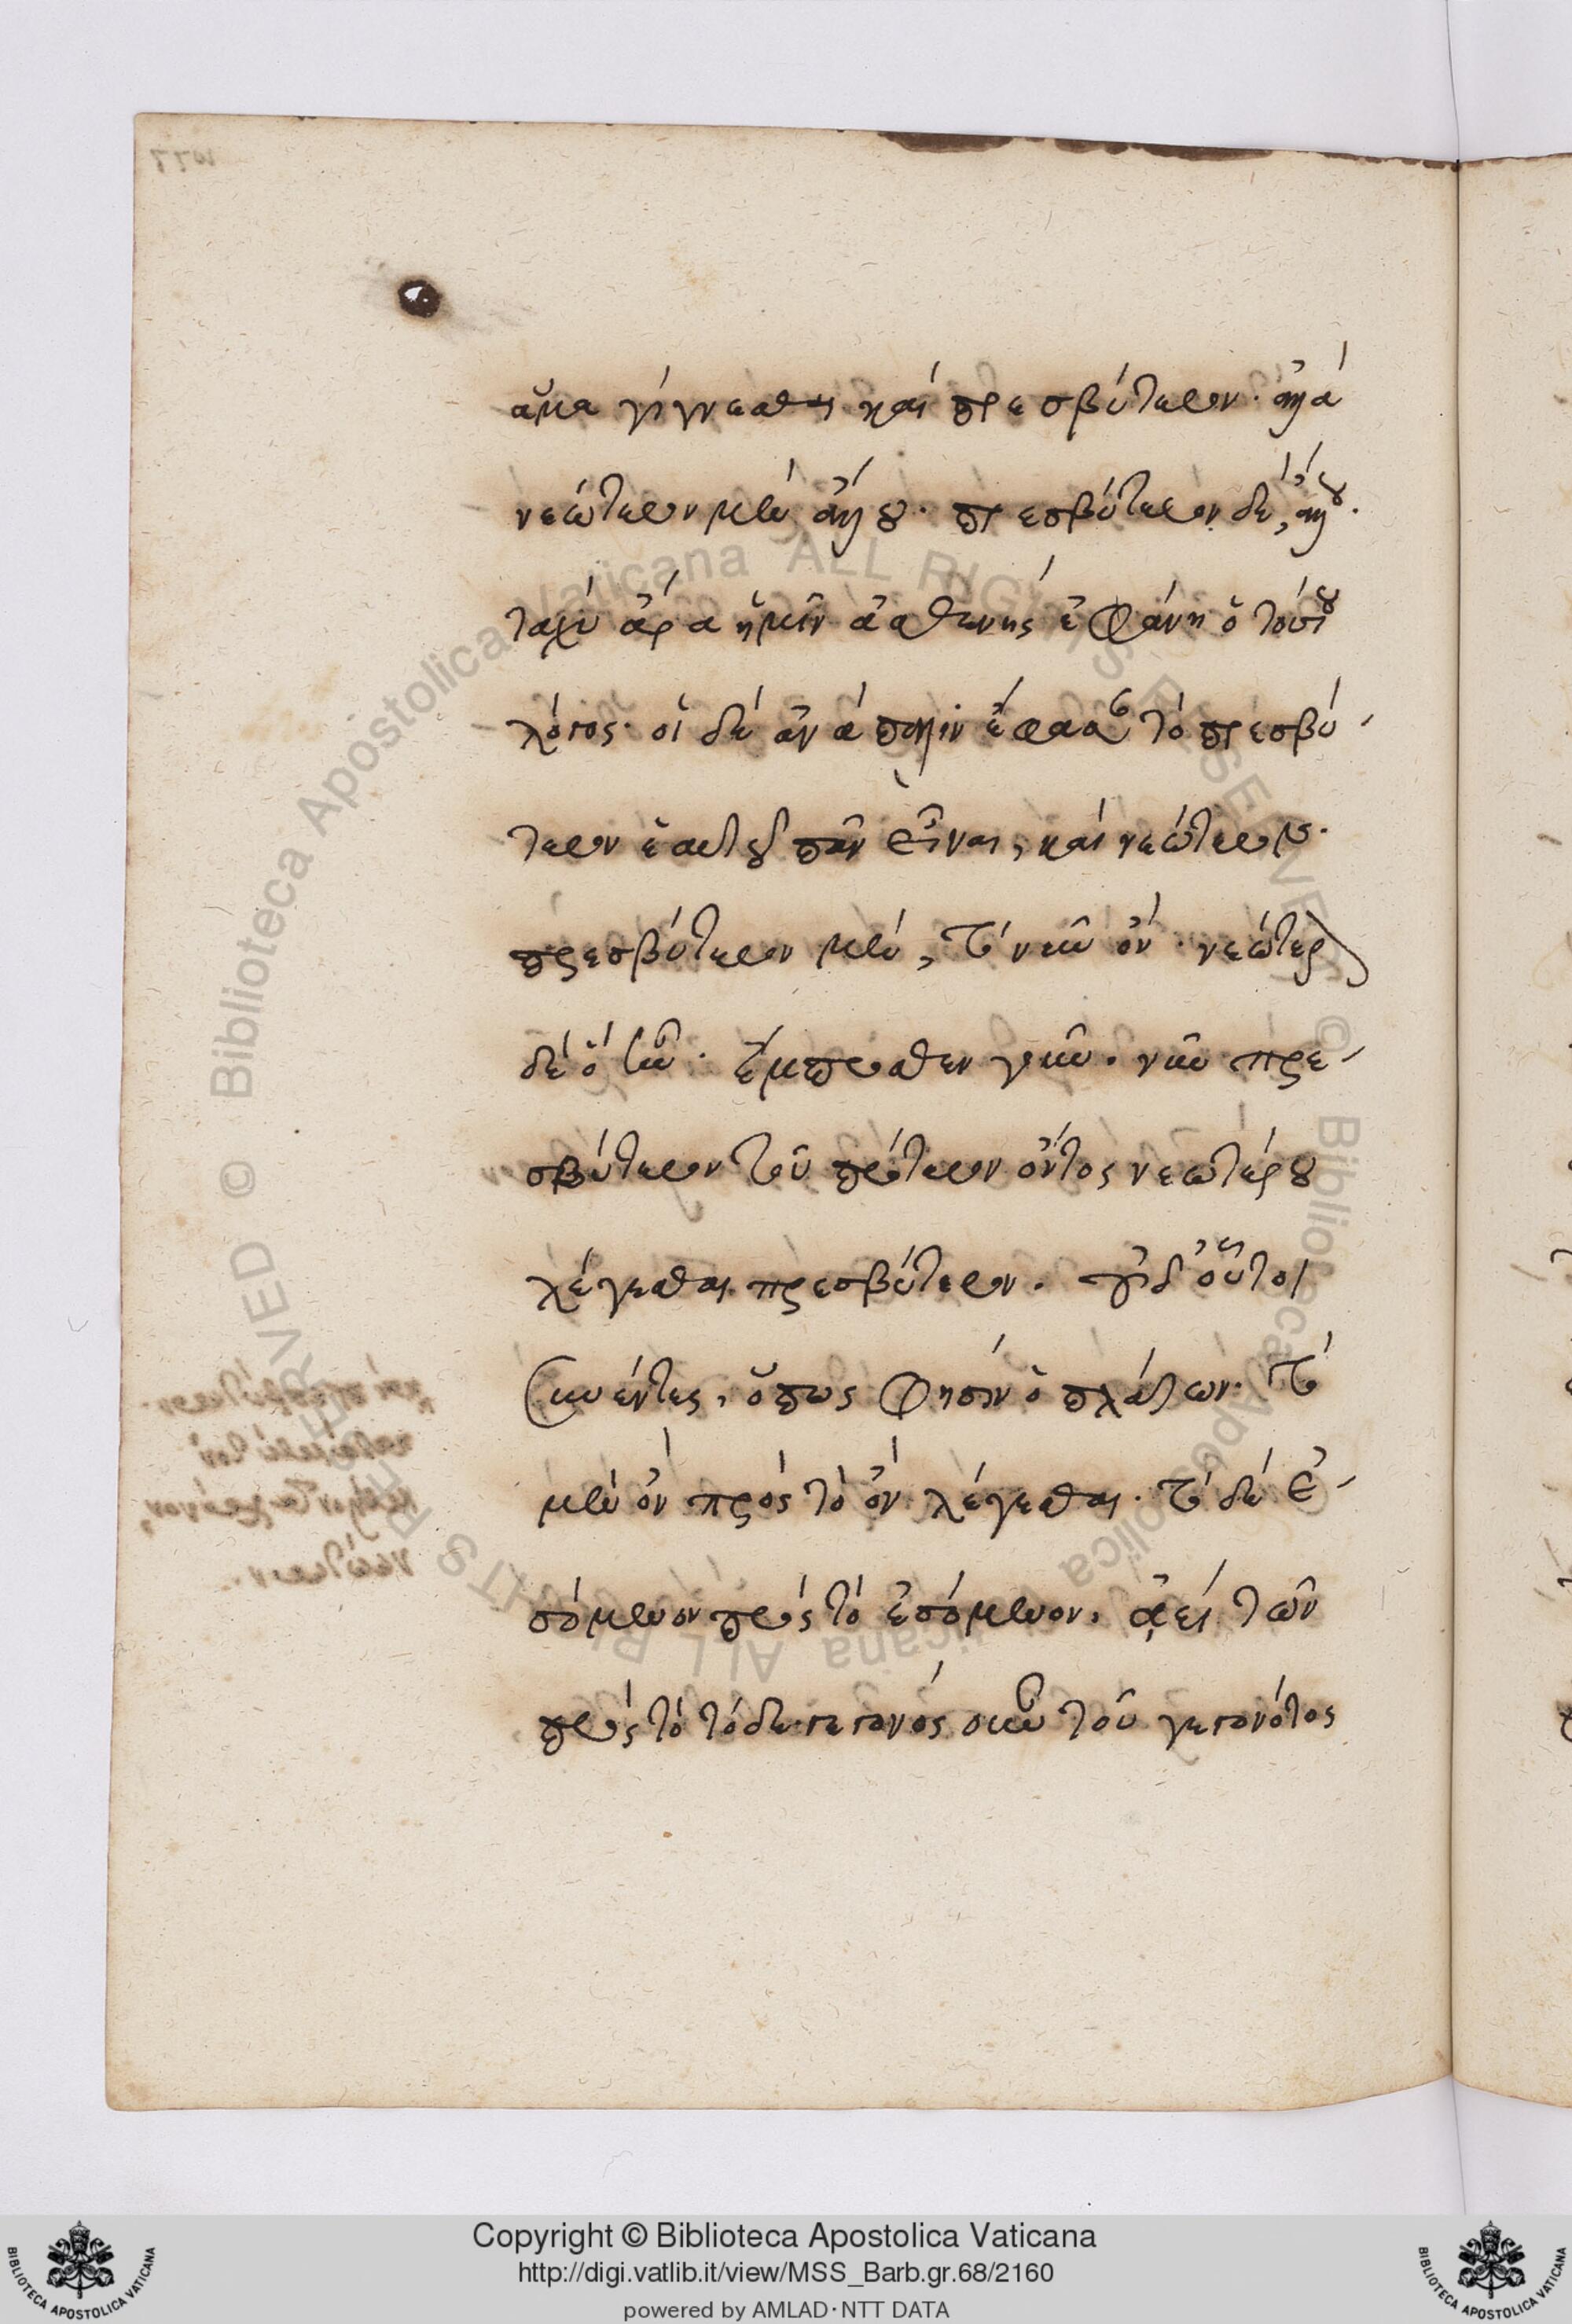 ἅμα γίγνεσθαι καὶ πρεσβύτερον. ἀλλὰ
νεώτερον μὲν ἄλλου. πρεσβύτερον δὲ, ἄλλου.
ταχὺ ἄρα ἡμῖν ἀσθενὴς ἐφάνη ὁ τούτου
λόγος. οἱ δὲ ἀνάπαλιν ἔφασαν τὸ πρεσβύ-
τερον ἑαυτοῦ πᾶν εἶναι, καὶ νεώτερον.
πρεσβύτερον μὲν, τὸ νῦν ὄν. νεώτερον
δὲ ὃ ἦν. ἔμπροσθεν γοῦν. νῦν πρε-
σβύτερον τοῦ πρότερον ὄντος νεωτέρου
λέγεσθαι πρεσβύτερον. οὐδ' οὗτοι
συνέντες, ὅπως φησὶν ὁ πλάτων. τὸ
μὲν ὂν πρὸς τὸ ὂν λέγεσθαι. τὸ δὲ ἐ-
σόμενον πρὸς τὸ ἐσόμενον. ἀεὶ τῶν
πρὸς τὸ τόδε γεγονὸς οὖν τοῦ γεγονότος
Copyright © Biblioteca Apostolica Vaticana
http://digi.vatlib.it/view/MSS_Barb.gr.68/2160
powered by AMLAD·NTT DATA
BIBLIOTECA APOSTOLICA VATICANA
BIBLIOTECA APOSTOLICA VATICANA